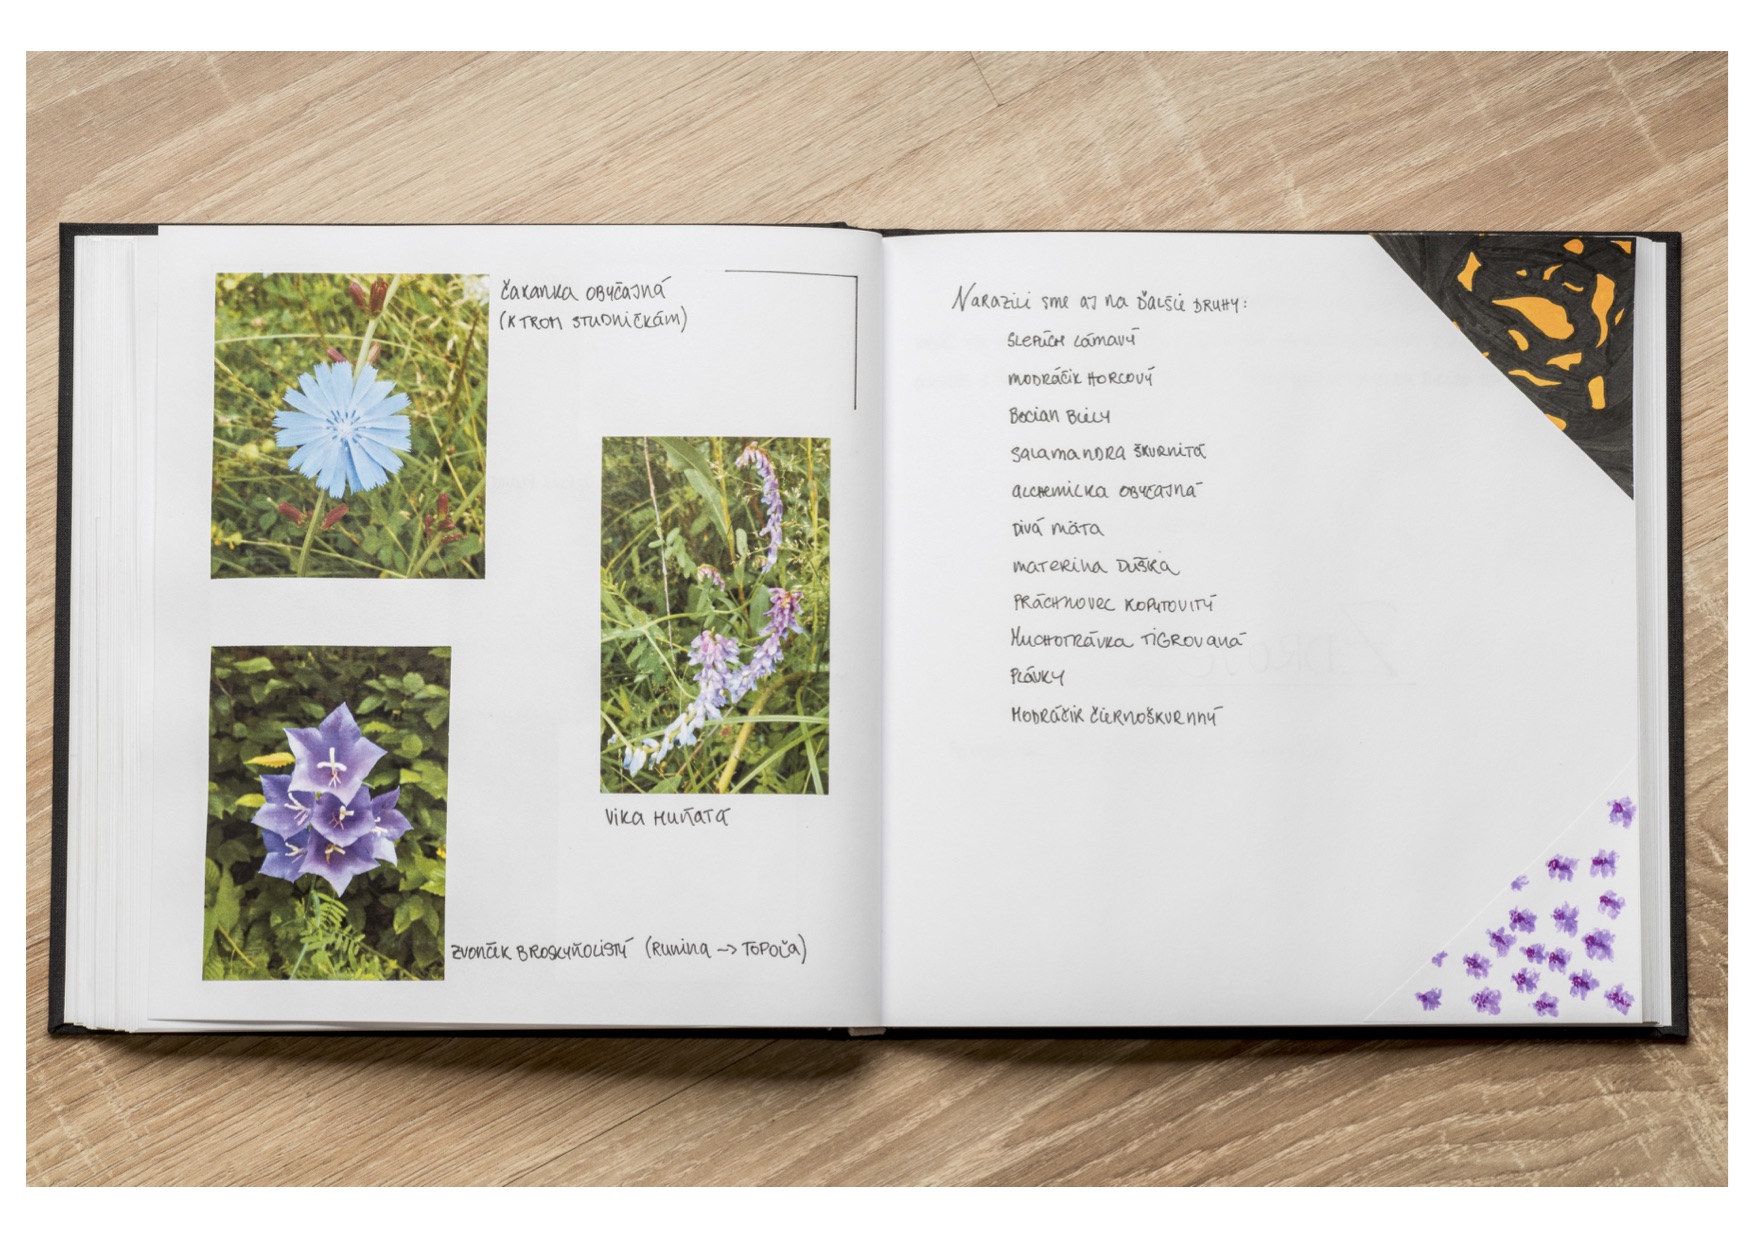 čakanka obyčajná
(k trom studničkám)
vika huňatá
zvonček broskyňolistý (Runina -> Topoľa)
Narazili sme aj na ďalšie druhy:
slepúch lámavý
modráčik horcový
Bocian Biely
salamandra škvrnitá
alchemilka obyčajná
Divá mäta
materina Dúška
Práchnovec kopytovitý
Muchotrávka tigrovaná
Plávky
Modráčik čiernoškvrnný